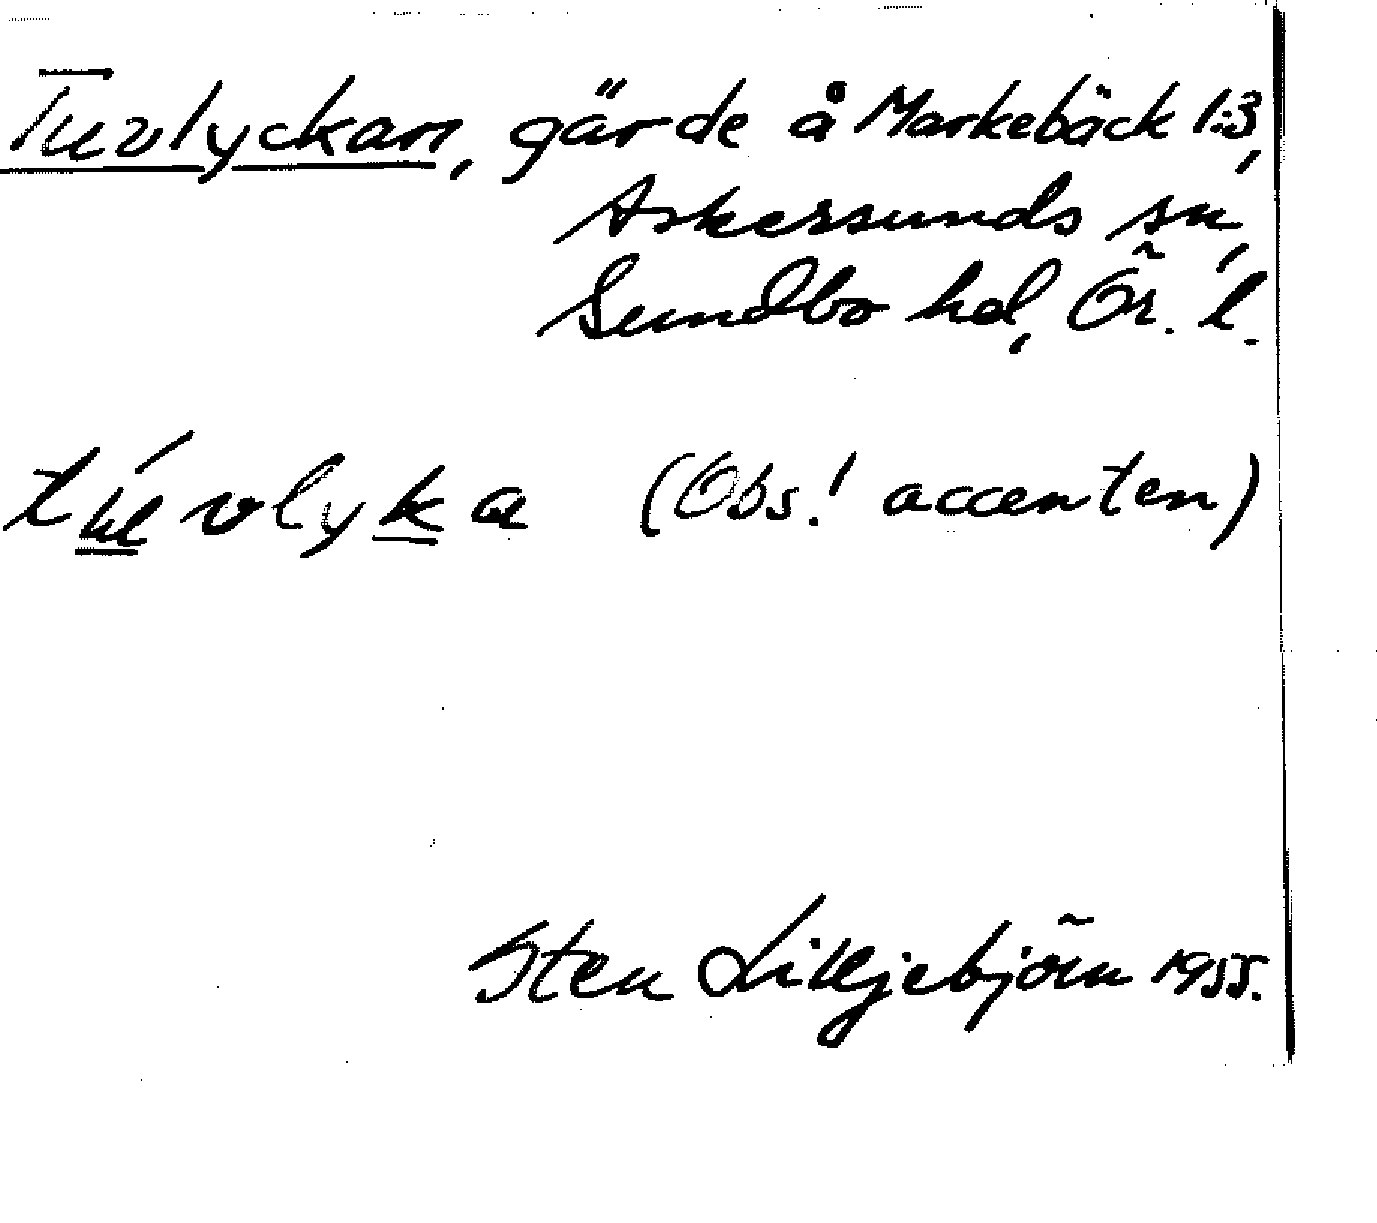 Tuvlyckan, gärde å Markebäck 1:3,
Askersunds sn,
Sundbo hd, Ör. l.
túvlyka (Obs.! accenten)
Sten Lilljebjörn 1955.